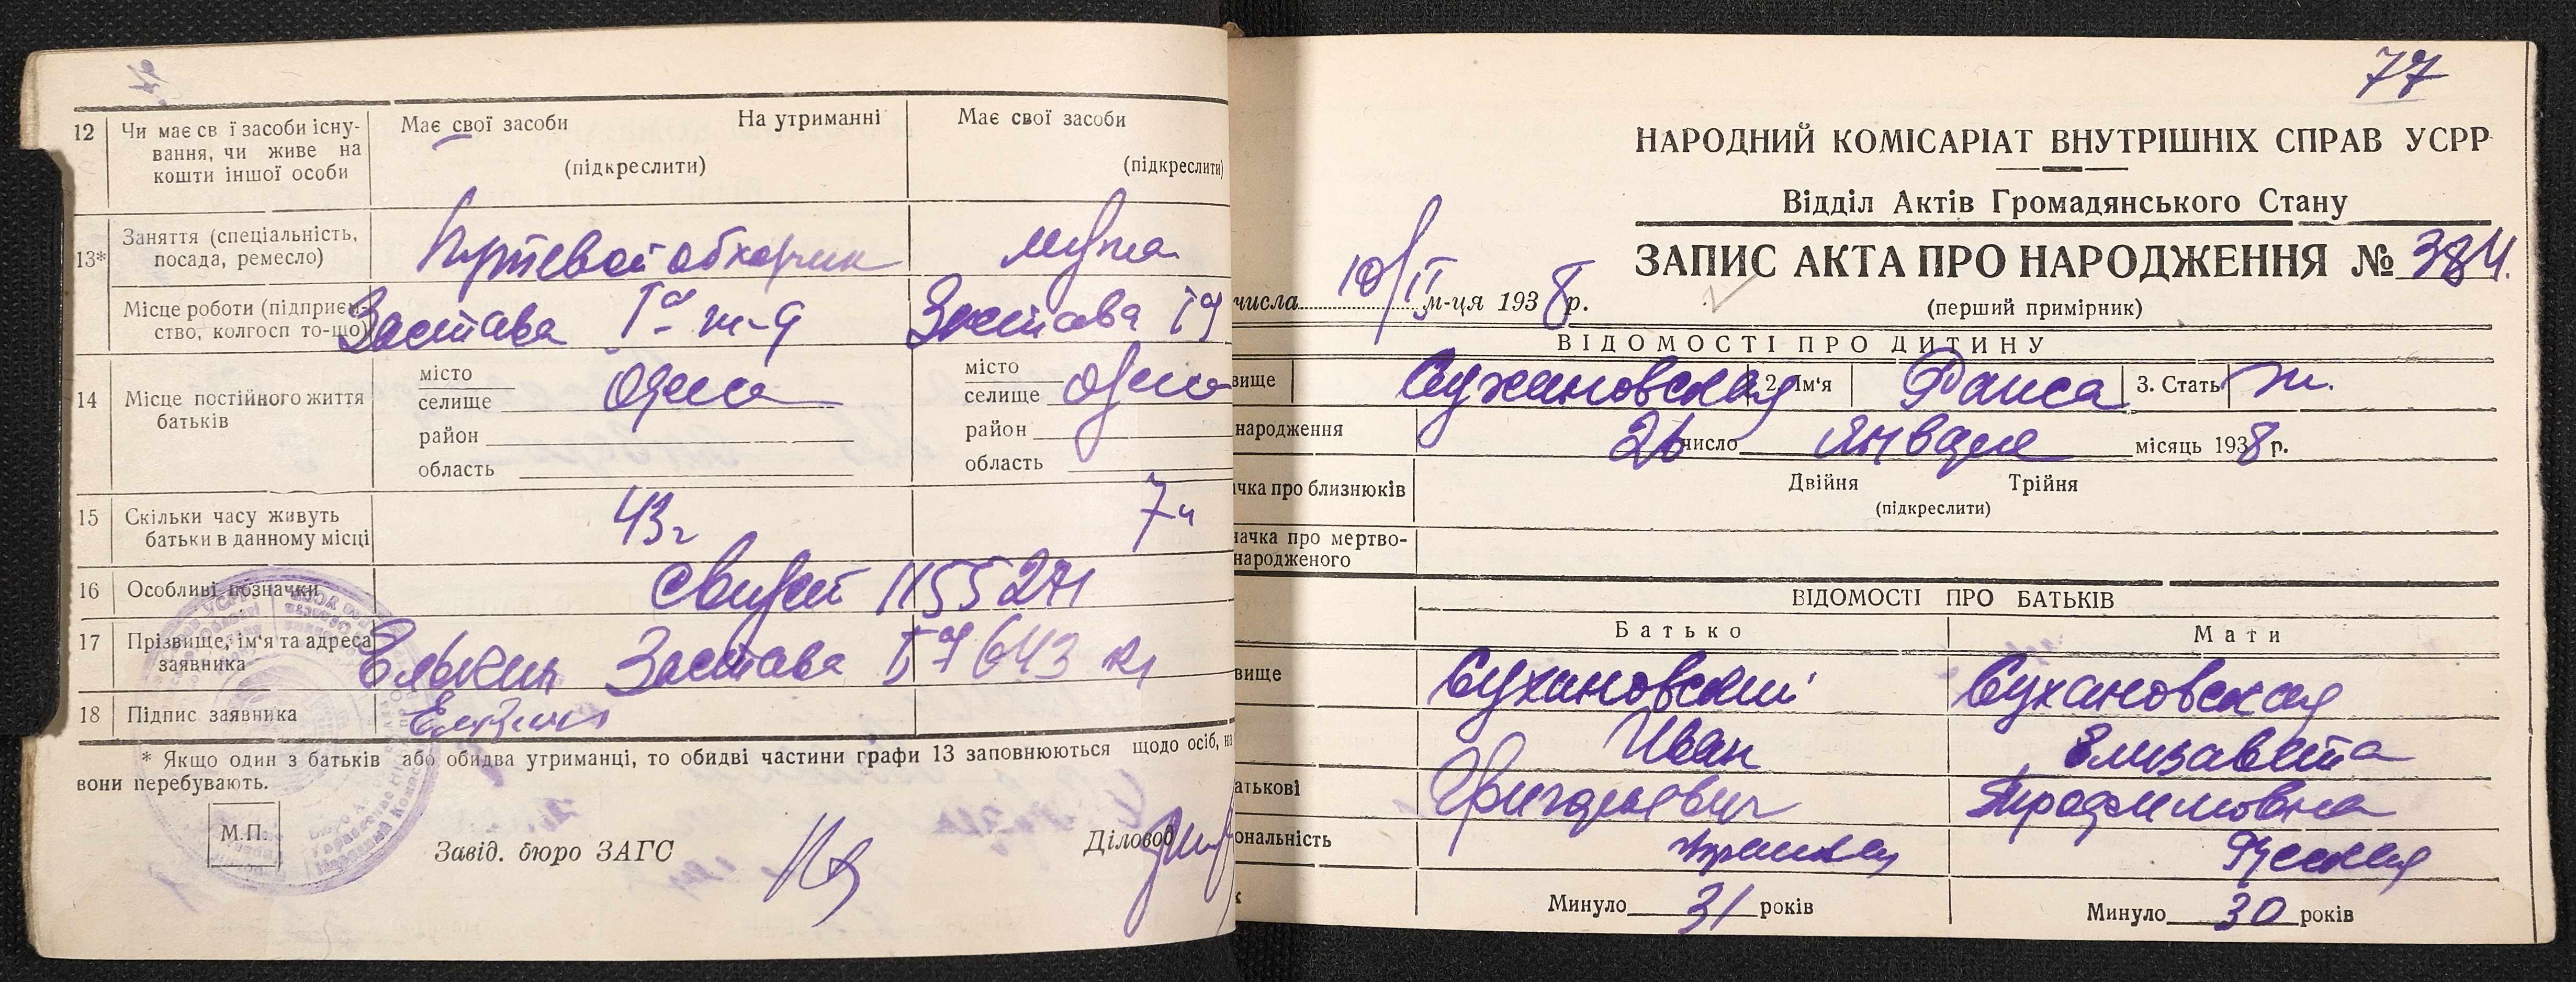 12 Чи має св ї засоби існу-
вання, чи живе на
кошти іншої особи
Має свої засоби На утриманні
(підкреслити)
Має свої засоби
(підкреслити)
13* Заняття (спеціальність,
посада, ремесло)
Путевой обходчик
мужа
Місце роботи (підприєм-
ство, колгосп то-що)
Застава Iая ж-д
Застава Iая
14 Місце постійного життя
батьків
місто
селище Одесса
район
область
місто
селище Одесса
район
область
15 Скільки часу живуть
батьки в данному місці
43 г
7 ч
16 Особливі позначки
Свидет 1155271
17 Прізвище, ім'я та адреса
заявника
Елькин Застава 643
18 Підпис заявника
Елькин
* Якщо один з батьків або обидва утриманці, то обидві частини графи 13 заповнюються щодо осіб, на
вони перебувають.
М.П.
Завід. бюро ЗАГС
Діловод
77
НАРОДНИЙ КОМІСАРІАТ ВНУТРІШНІХ СПРАВ УСРР
Відділ Актів Громадянського Стану
ЗАПИС АКТА ПРО НАРОДЖЕННЯ № 384.
числа 10/II м-ця 1938 р.
(перший примірник)
ВІДОМОСТІ ПРО ДИТИНУ
вище Сухановская 2. Ім'я Раиса 3. Стать ж.
народження 26 число Января місяць 1938 р.
ачка про близнюків
Двійня Трійня
(підкреслити)
начка про мертво-
народженого
ВІДОМОСТІ ПРО БАТЬКІВ
Батько Мати
вище Сухановский Сухановская
Иван Елизавета
атькові Григорьевич Трофимовна
ональність Украинец Русская
к Минуло 31 років Минуло 30 років